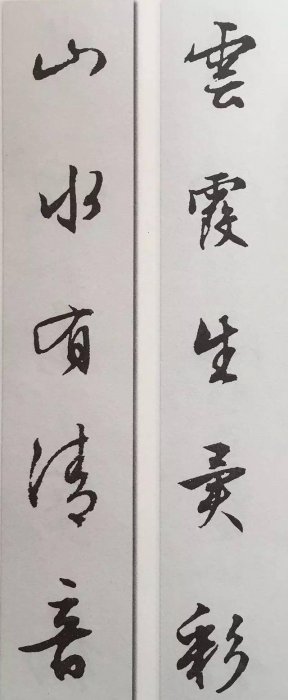 雲霞生異彩
山水有清音